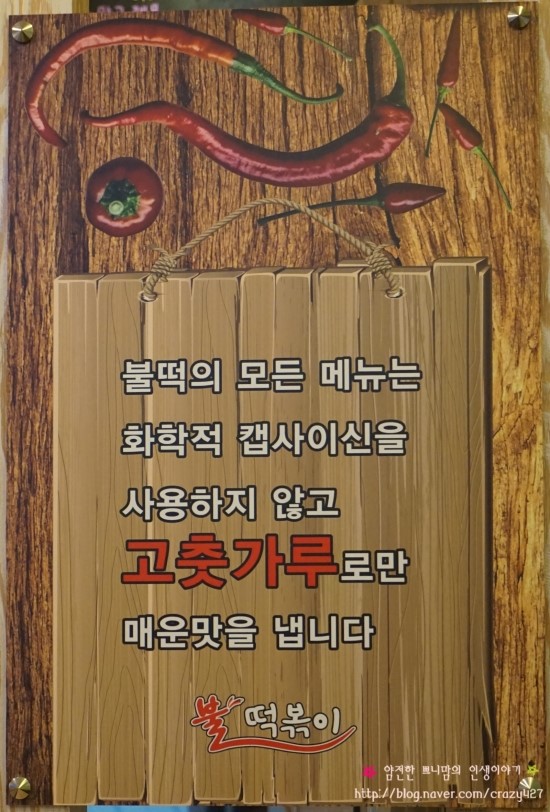 불떡의 모든 메뉴는
화학적 캡사이신을
사용하지 않고
고춧가루로만
매운맛을 냅니다
불떡볶이
얌전한 쁘니맘의 인생이야기
http://blog.naver.com/crazy427